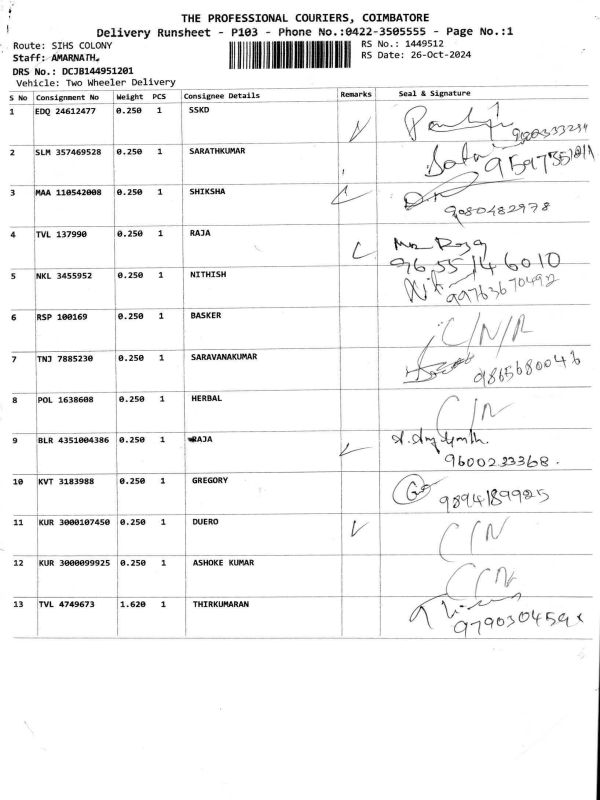 THE PROFESSIONAL COURIERS, COIMBATORE
Delivery Runsheet - P103 - Phone No.:0422-3505555 - Page No.:1
Route: SIHS COLONY
RS No.: 1449512
Staff: AMARNATH.
RS Date: 26-Oct-2024
DRS No.: DCJB144951201
Vehicle: Two Wheeler Delivery
S No Consignment No Weight PCS Consignee Details Remarks Seal & Signature
1 EDQ 24612477 0.250 1 SSKD
2 SLM 357469528 0.250 1 SARATHKUMAR
3 MAA 110542008 0.250 1 SHIKSHA
9080482978
4 TVL 137990 0.250 1 RAJA
96 55 14 6010
5 NKL 3455952 0.250 1 NITHISH
99763670492
6 RSP 100169 0.250 1 BASKER C/N/R
7 TNJ 7885230 0.250 1 SARAVANAKUMAR 9865680046
8 POL 1638608 0.250 1 HERBAL C/N
9 BLR 4351004386 0.250 1 RAJA
9600233368.
10 KVT 3183988 0.250 1 GREGORY 9894189925
11 KUR 3000107450 0.250 1 DUERO C/N
12 KUR 3000099925 0.250 1 ASHOKE KUMAR C/N
13 TVL 4749673 1.620 1 THIRKUMARAN